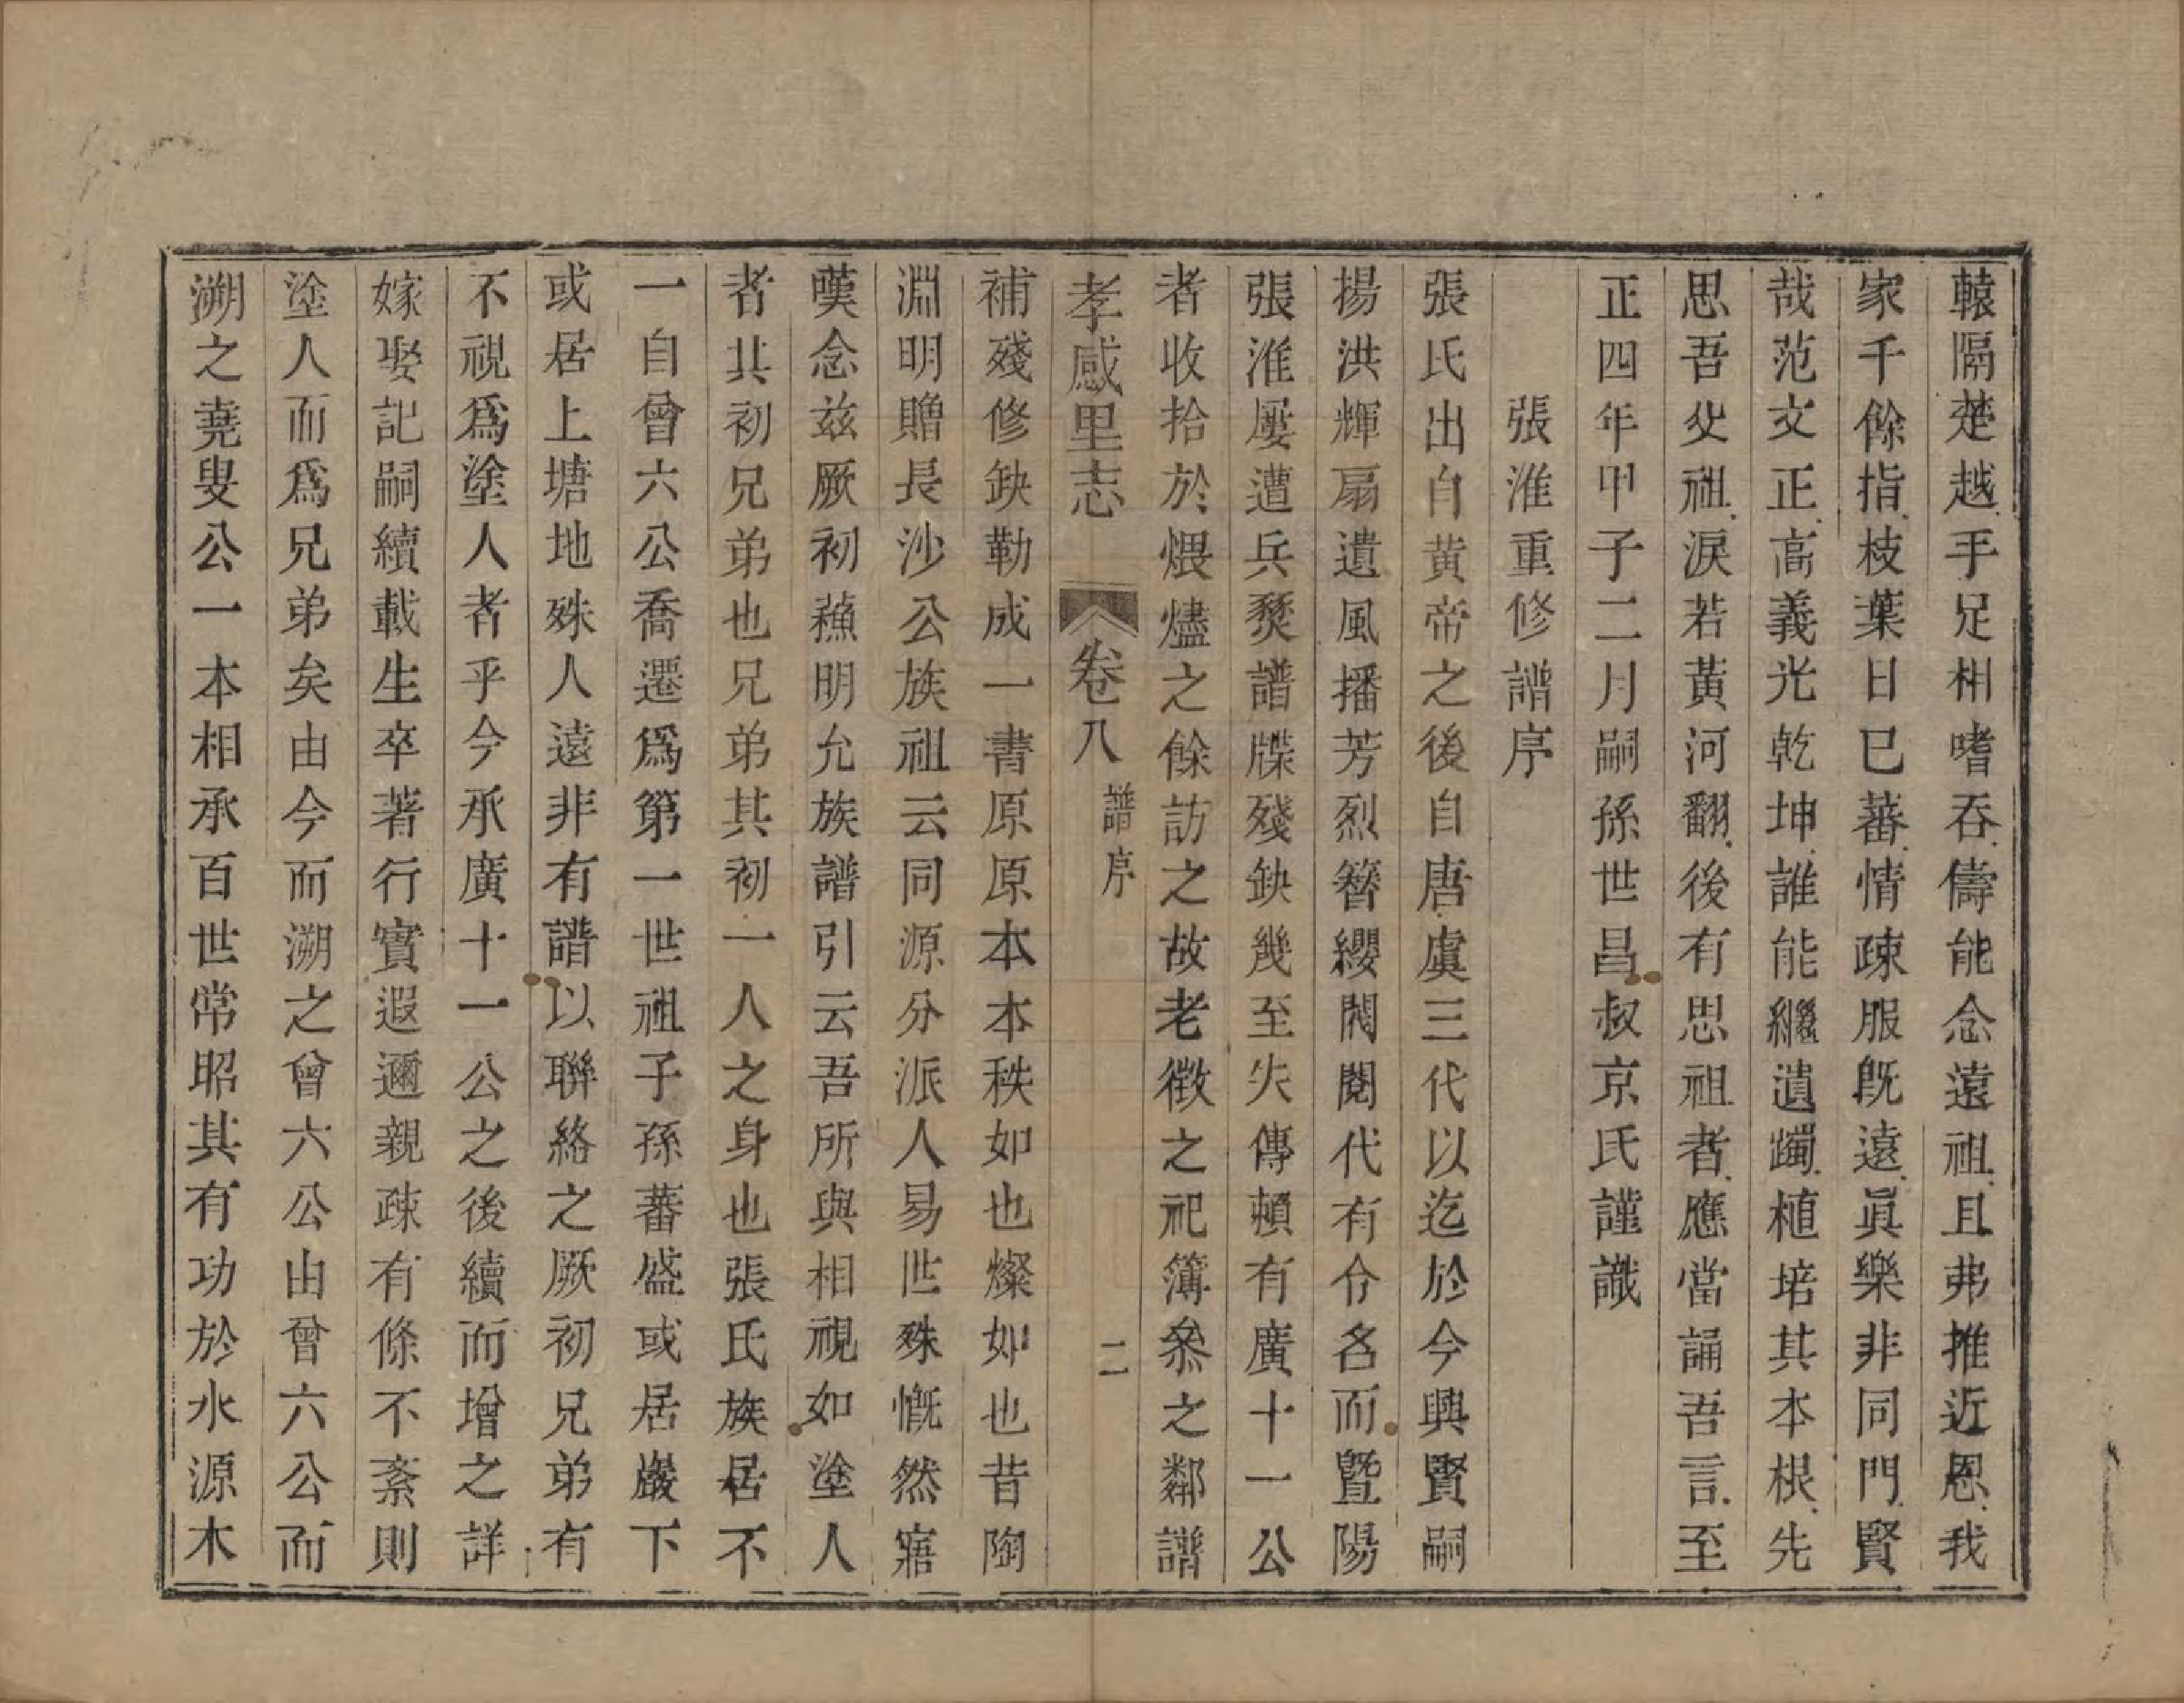 轅隔楚越手足相嗜吞儔能念遠祖且弗推近恩我
家千餘指枝葉日已蕃情疎服旣遠眞樂非同門賢
哉范文正高義光乾坤誰能繼遺躅植培其本根先
思吾父祖淚若黃河翻後有思祖者應當誦吾言至
正四年甲子二月嗣孫世昌叔京氏謹識
張淮重修譜序
張氏出自黃帝之後自唐虞三代以迄於今興賢嗣
揚洪輝扇遺風播芳烈簪纓閥閱代有令名而曁陽
張淮屢遭兵燹譜牒殘缺幾至失傳頼有廣十一公
者收拾於煨燼之餘訪之故老徵之祀簿叅之鄰譜
孝感里志 卷八 譜序 二
補殘修缺勒成一書原原本本秩如也燦如也昔陶
淵明贈長沙公族祖云同源分派人易世殊慨然寤
嘆念兹厥初蘓明允族譜引云吾所與相視如塗人
者其初兄弟也兄弟其初一人之身也張氏族居不
一自曾六公喬遷爲第一世祖子孫蕃盛或居巖下
或居上塘地殊人遠非有譜以聯絡之厥初兄弟有
不視爲塗人者乎今承廣十一公之後續而增之詳
嫁娶記嗣續載生卒著行實遐邇親疎有條不紊則
塗人而爲兄弟矣由今而溯之曾六公由曾六公而
溯之堯叟公一本相承百世常昭其有功於水源木